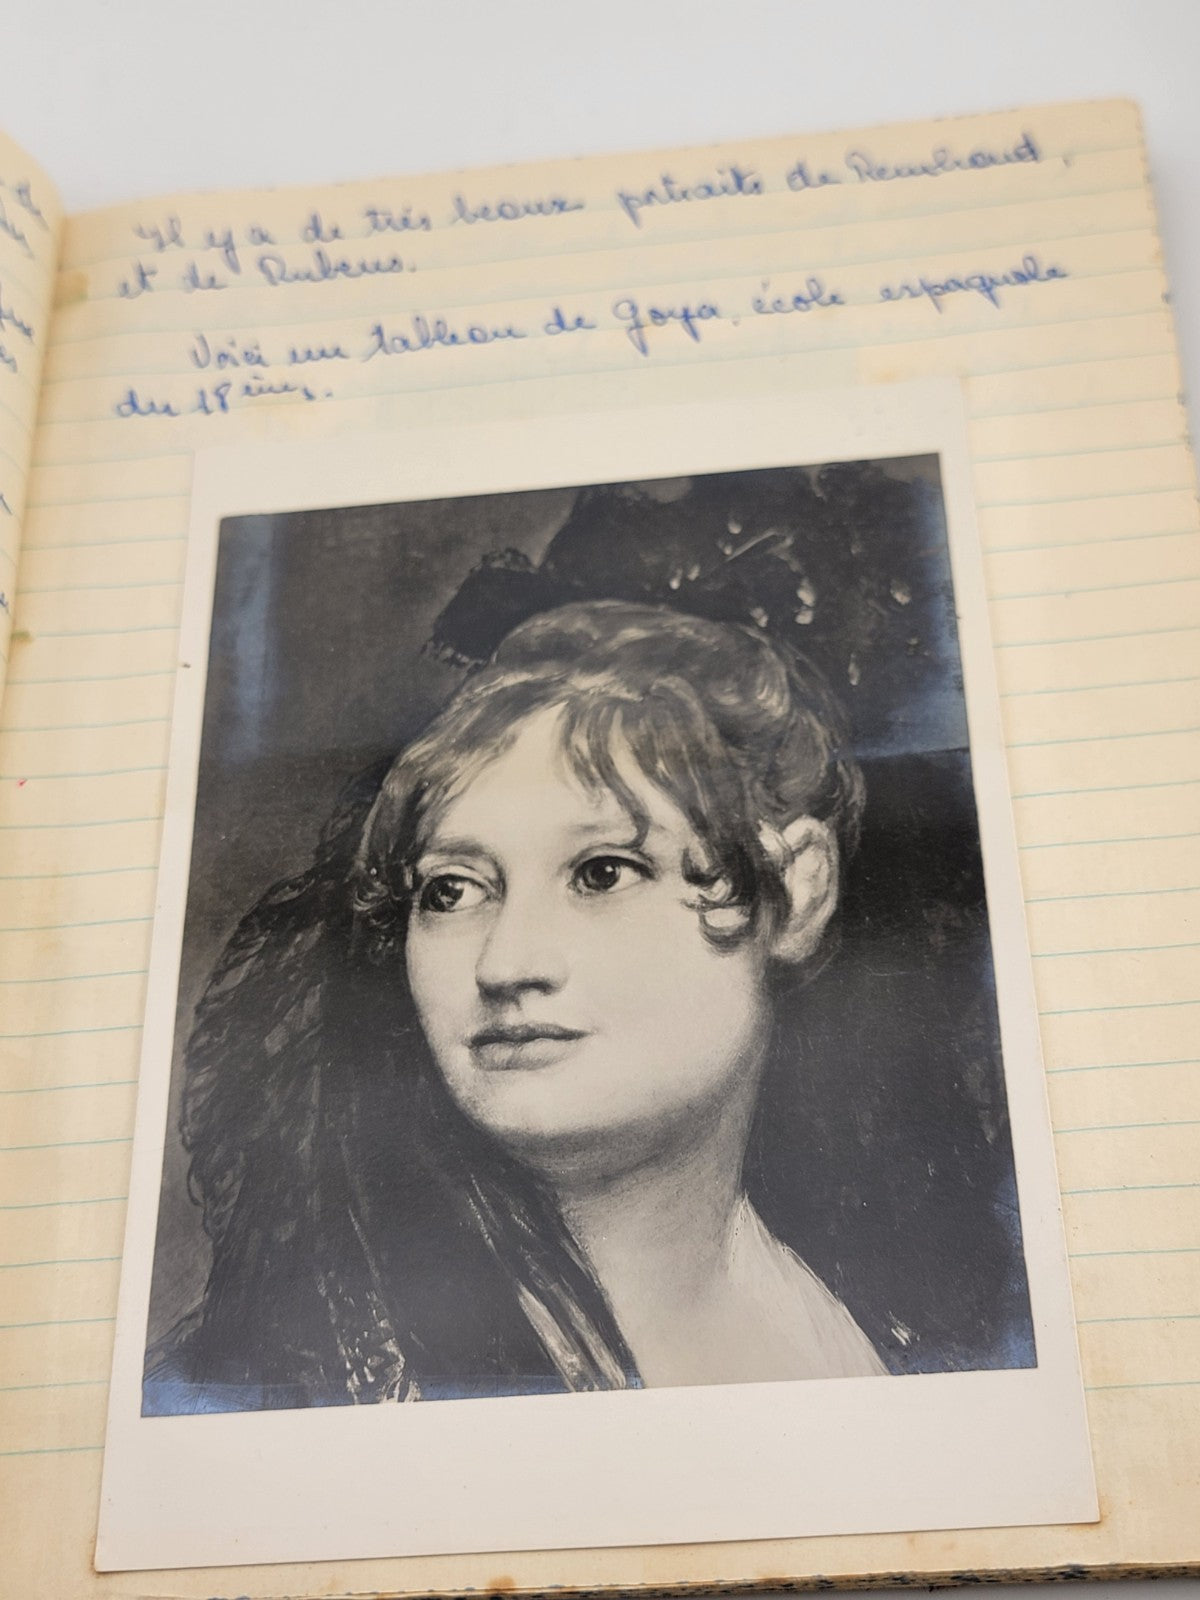 Il y a de très beaux portraits de Rembrand,
et de Rubens.
Voici un tableau de Goya, école espagnole
du 18ème.